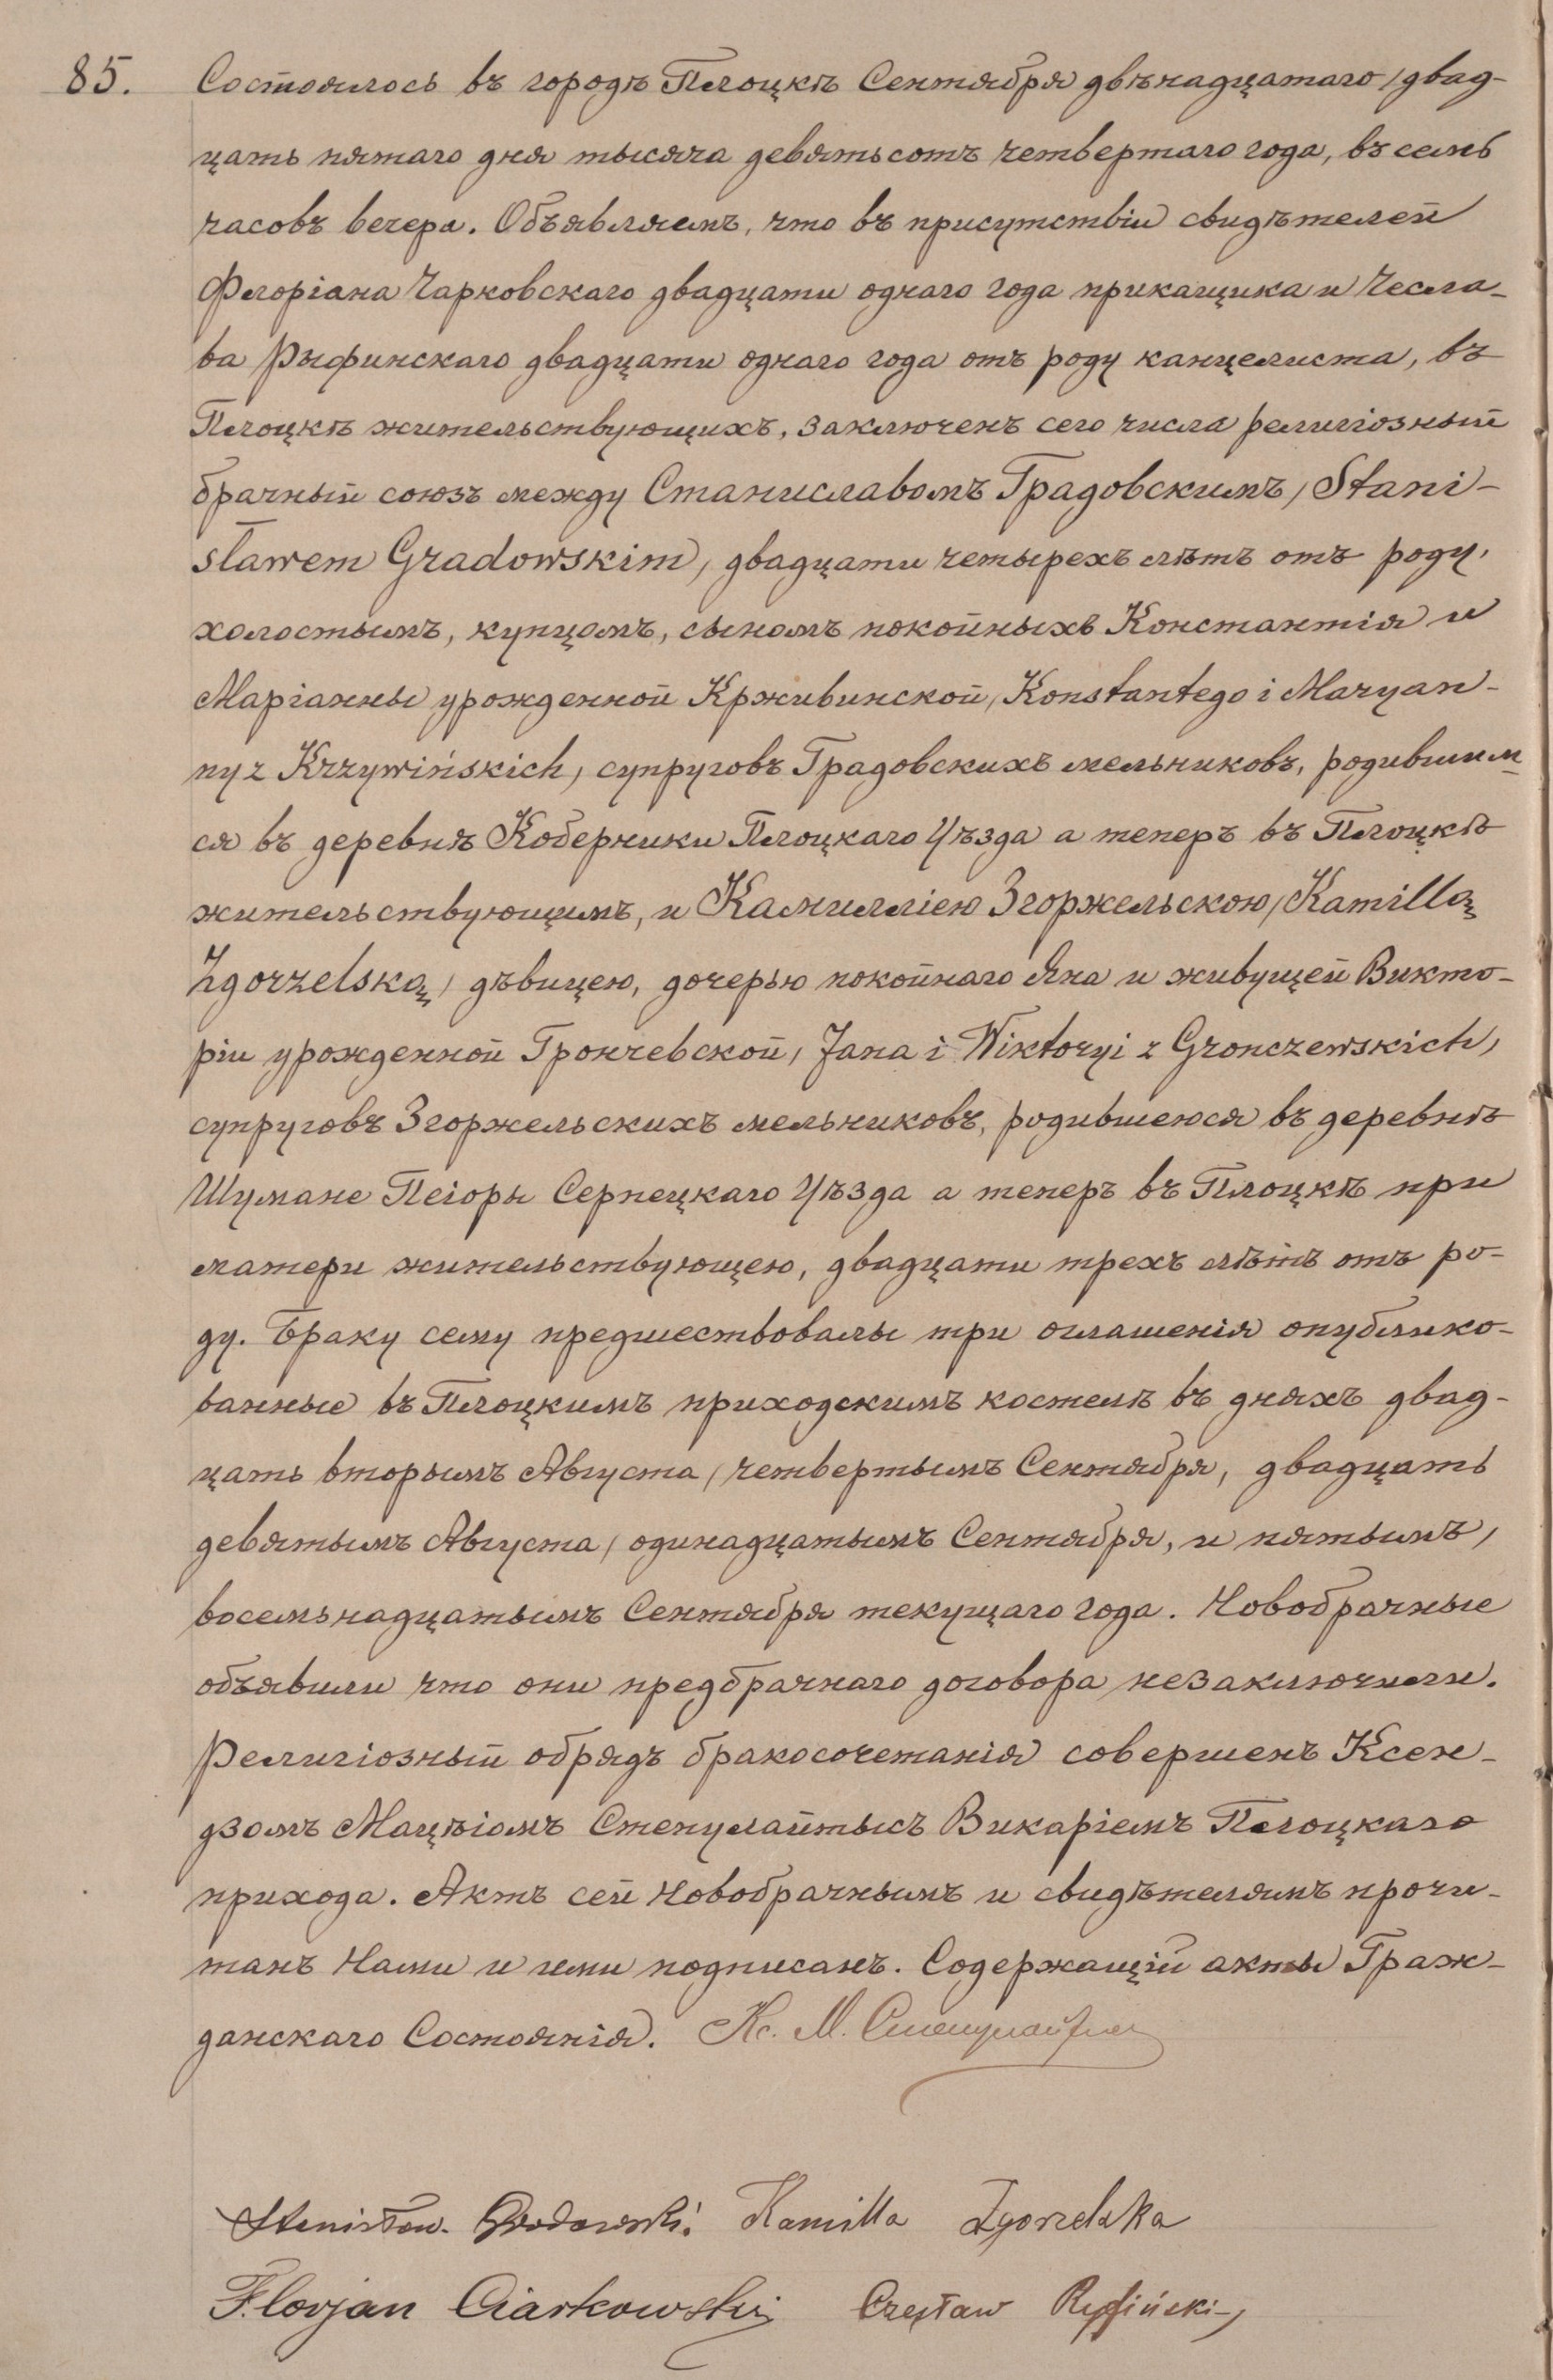 85. Состоялось въ городѣ Плоцкѣ Сентября двѣнадцатаго /двад-
цать пятаго дня тысяча девятьсотъ четвертаго года, въ семь
часовъ вечера. Объявляемъ, что въ присутствіи свидѣтелей
Флоріана Чарковскаго двадцати одного года прикащика и Чесла-
ва Рыфинскаго двадцати одного года отъ роду канцелиста, въ
Плоцкѣ жительствующихъ, заключенъ сего числа религіозный
брачный союзъ между Станиславомъ Градовскимъ, /Stani-
sławem Gradowskim/, двадцати четырехъ лѣтъ отъ роду,
холостымъ, купцомъ, сыномъ покойныхъ Константія и
Маріанны урожденной Крживинской, /Konstantego i Maryan-
ny z Krzywińskich/, супруговъ Градовскихъ мельниковъ, родившим-
ся въ деревнѣ Коберники Плоцкаго Уѣзда а теперъ въ Плоцкѣ
жительствующимъ, и Камилліею Згоржельскою, /Kamillą
Zgorzelską/ дѣвицею, дочерью покойнаго Яна и живущей Викто-
ріи урожденной Грончевской, /Jana i Wiktoryi z Gronczewskich/,
супруговъ Згоржельскихъ мельниковъ, родившеюся въ деревнѣ
Шумане Пегоры Серпецкаго Уѣзда а теперъ въ Плоцкѣ при
матери жительствующею, двадцати трехъ лѣтъ отъ ро-
ду. Браку сему предшествовалы три оглашенія опублико-
ванные въ Плоцкимъ приходскимъ костелѣ въ дняхъ двад-
цать вторымъ Августа /четвертымъ Сентября, двадцать
девятымъ Августа /одинадцатымъ Сентября, и пятымъ/
восемьнадцатымъ Сентября текущаго года. Новобрачные
объявили что они предбрачнаго договора незаключили.
Религіозный обрядъ бракосочетанія совершенъ Ксен-
дзомъ Мацѣіомъ Степулайтысъ Викаріемъ Плоцкаго
прихода. Актъ сей Новобрачнымъ и свидѣтелямъ прочи-
танъ Нами и ими подписанъ. Содержащій акты Граж-
данскаго Состоянія. Кс. М. Степулайтыс
Stanisław Gradowski. Kamilla Zgorzelska
Florjan Ciarkowski Czesław Ryfiński